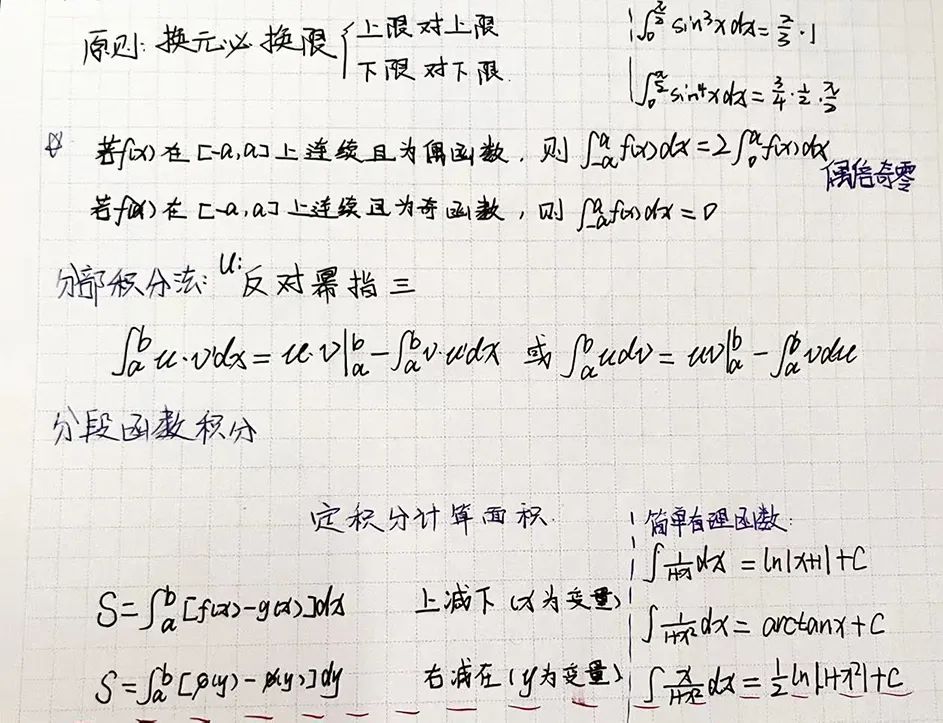 原则: 换元必换限 { 上限对上限
下限对下限
∫₀^(π/2) sin³xdx = 2/3 · 1
∫₀^(π/2) sin⁴xdx = 3/4 · 1/2 · π/2
☆ 若f(x)在[-a,a]上连续且为偶函数, 则 ∫₋ₐ^a f(x)dx = 2∫₀^a f(x)dx
偶倍奇零
若f(x)在[-a,a]上连续且为奇函数, 则 ∫₋ₐ^a f(x)dx = 0
分部积分法: u: 反对幂指三
∫ₐ^b u·v'dx = u·v|ₐ^b - ∫ₐ^b v·u'dx 或 ∫ₐ^b udv = uv|ₐ^b - ∫ₐ^b vdu
分段函数积分
定积分计算面积
S = ∫ₐ^b [f(x)-g(x)]dx 上减下 (x为变量)
S = ∫ₐ^b [φ(y)- (y)]dy 右减在 (y为变量)
简单有理函数:
∫ 1/(1+x) dx = ln|x+1| + C
∫ 1/(1+x²) dx = arctanx + C
∫ x/(1+x²) dx = 1/2 ln|1+x²| + C